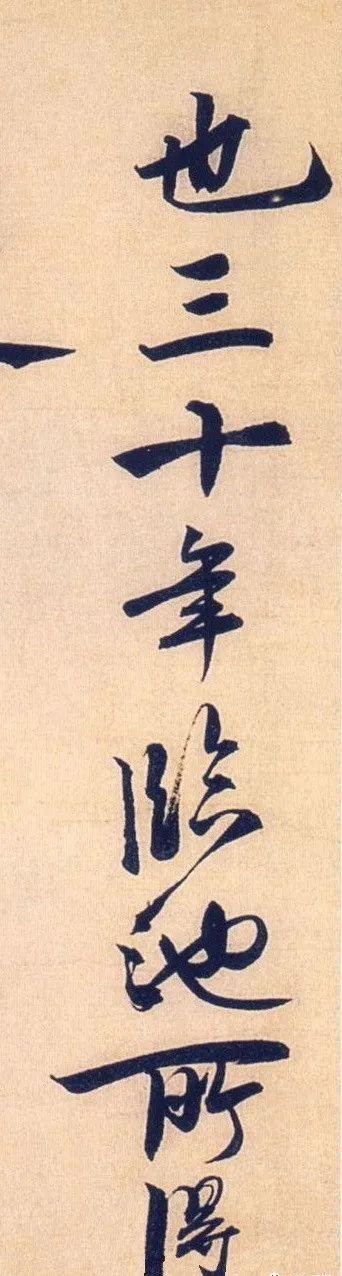 也三十年臨池所得